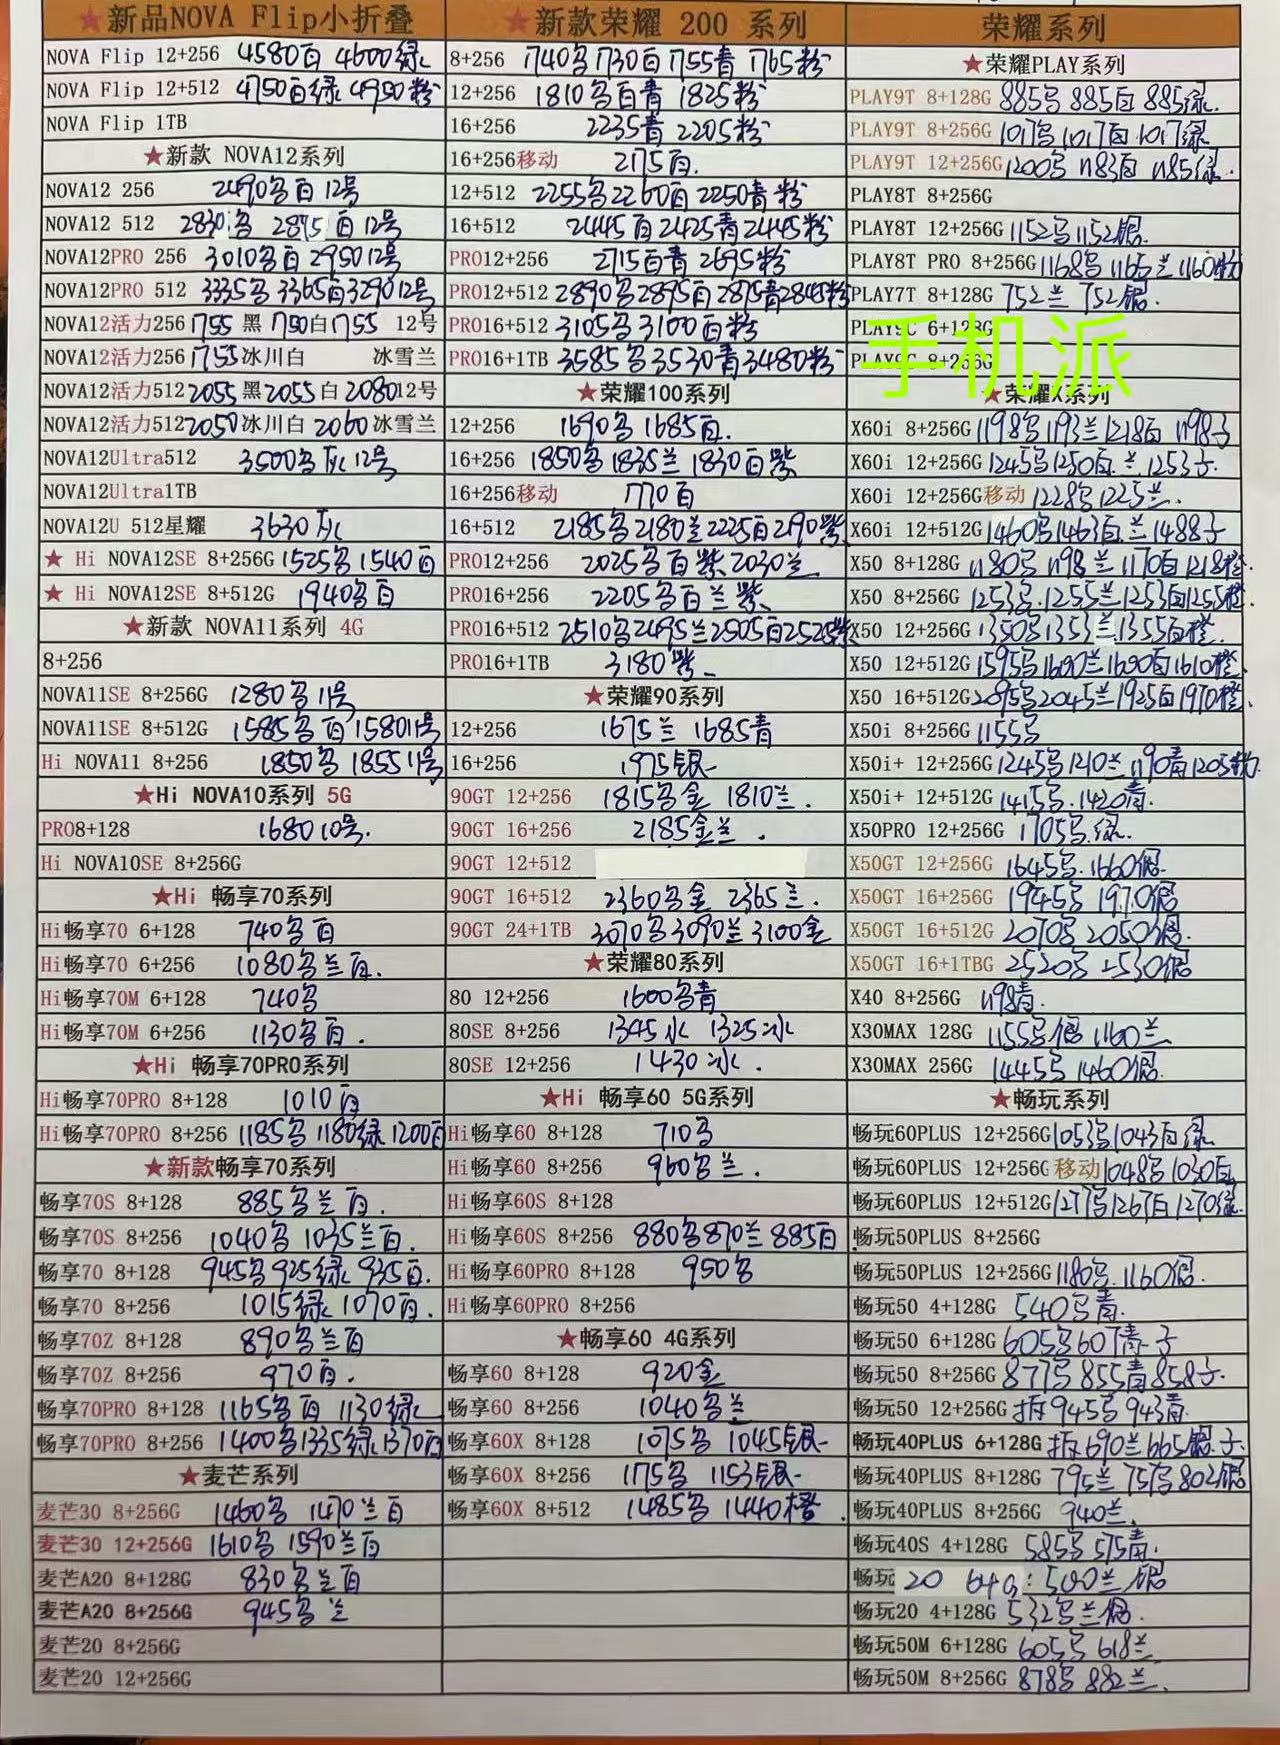 ★新品NOVA Flip小折叠
NOVA Flip 12+256 4580白 4600绿
NOVA Flip 12+512 4750白绿 4950粉
NOVA Flip 1TB
★新款 NOVA12系列
NOVA12 256 2490白 12号
NOVA12 512 2830 2895白 12号
NOVA12PRO 256 3010白 2950 12号
NOVA12PRO 512 3335 3365白 3290 12号
NOVA12活力256 1755 黑 1750白 1755 12号
NOVA12活力256 1755 冰川白 冰雪兰
NOVA12活力512 2055 黑 2055 白 2080 12号
NOVA12活力512 2050 冰川白 2060 冰雪兰
NOVA12Ultra512 3500 灰 12号
NOVA12Ultra1TB
NOVA12U 512星耀 3630 灰
★ Hi NOVA12SE 8+256G 1525 1540白
★ Hi NOVA12SE 8+512G 1940白
★新款 NOVA11系列 4G
8+256
NOVA11SE 8+256G 1280 11号
NOVA11SE 8+512G 1585白 1580 11号
Hi NOVA11 8+256 1850 1855 11号
★Hi NOVA10系列 5G
PRO8+128 1680 10号.
Hi NOVA10SE 8+256G
★Hi 畅享70系列
Hi畅享70 6+128 740白
Hi畅享70 6+256 1080兰白.
Hi畅享70M 6+128 740
Hi畅享70M 6+256 1130白.
★Hi 畅享70PRO系列
Hi畅享70PRO 8+128 1010白
Hi畅享70PRO 8+256 1185 1180绿 1200白
★新款畅享70系列
畅享70S 8+128 885兰白.
畅享70S 8+256 1040 1035兰白.
畅享70 8+128 945 925绿 935白.
畅享70 8+256 1015绿 1070白.
畅享70Z 8+128 890兰白
畅享70Z 8+256 970白.
畅享70PRO 8+128 1165白 1130绿
畅享70PRO 8+256 1400 1335绿 1370白
★麦芒系列
麦芒30 8+256G 1460 1470兰白
麦芒30 12+256G 1610 1590兰白
麦芒A20 8+128G 830兰白
麦芒A20 8+256G 945兰
麦芒20 8+256G
麦芒20 12+256G
★新款荣耀 200 系列
8+256 1740 1730白 1755青 1765粉
12+256 1810白青 1825粉
16+256 2235青 2205粉
16+256移动 2175白.
12+512 2255 2260白 2250青粉
16+512 2445白 2425青 2445粉
PRO12+256 2715白青 2695粉
PRO12+512 2890 2895白 2875青 2845粉
PRO16+512 3105 3100白粉
PRO16+1TB 3585 3530青 3480粉
★荣耀100系列
12+256 1690 1685白.
16+256 1850 1835兰 1830白紫
16+256移动 1770白
16+512 2185 2180兰 2225白 2190紫
PRO12+256 2025白紫 2030兰
PRO16+256 2205白兰紫
PRO16+512 2510 2495兰 2505白 2525紫
PRO16+1TB 3180紫
★荣耀90系列
12+256 1675兰 1685青
16+256 1975银
90GT 12+256 1815金 1810兰.
90GT 16+256 2185金兰.
90GT 12+512
90GT 16+512 2360金 2365兰.
90GT 24+1TB 3070 3090兰 3100金
★荣耀80系列
80 12+256 1600青
80SE 8+256 1345冰 1325冰
80SE 12+256 1430冰.
★Hi 畅享60 5G系列
Hi畅享60 8+128 710
Hi畅享60 8+256 960兰.
Hi畅享60S 8+128
Hi畅享60S 8+256 880 870兰 885白.
Hi畅享60PRO 8+128 950
Hi畅享60PRO 8+256
★畅享60 4G系列
畅享60 8+128 920金
畅享60 8+256 1040兰
畅享60X 8+128 1075 1045银
畅享60X 8+256 1175 1153银
畅享60X 8+512 1485 1440橙.
荣耀系列
★荣耀PLAY系列
PLAY9T 8+128G 885 885白 885绿.
PLAY9T 8+256G 1017 1017白 1017绿
PLAY9T 12+256G 1200 1183白 1185绿.
PLAY8T 8+256G
PLAY8T 12+256G 1152 1152银.
PLAY8T PRO 8+256G 1168 1165兰 1160粉
PLAY7T 8+128G 752兰 752银.
PLAY9C 6+128G
PLAY9C 8+256G
手机派
★荣耀X系列
X60i 8+256G 1198 1193兰 1218白 1198子
X60i 12+256G 1245 1250白兰 1253子.
X60i 12+256G移动 1228 1225兰.
X60i 12+512G 1460 1463白兰 1488子
X50 8+128G 1180 1198兰 1170白 1218橙.
X50 8+256G 1253 1255兰 1253白 1255橙.
X50 12+256G 1350 1353兰 1355白橙.
X50 12+512G 1595 1600兰 1600白 1610橙.
X50 16+512G 2095 2045兰 1925白 1970橙.
X50i 8+256G 1155
X50i+ 12+256G 1245 1210兰 1190青 1205粉
X50i+ 12+512G 1415 1420青.
X50PRO 12+256G 1705绿.
X50GT 12+256G 1645 1660银.
X50GT 16+256G 1945 1970银
X50GT 16+512G 2070 2050银.
X50GT 16+1TBG 2520 2530银
X40 8+256G 1198青.
X30MAX 128G 1155银 1160兰
X30MAX 256G 1445 1460银.
★畅玩系列
畅玩60PLUS 12+256G 1053 1043白绿
畅玩60PLUS 12+256G 移动 1048 1030白
畅玩60PLUS 12+512G 1277 1267白 1270绿
畅玩50PLUS 8+256G
畅玩50PLUS 12+256G 1180 1160银.
畅玩50 4+128G 540青.
畅玩50 6+128G 605 607青子
畅玩50 8+256G 877 855青 858子.
畅玩50 12+256G 拆945 943青.
畅玩40PLUS 6+128G 拆690兰 665银子.
畅玩40PLUS 8+128G 795兰 757 802银
畅玩40PLUS 8+256G 940兰.
畅玩40S 4+128G 585 575青.
畅玩 20 64G: 500兰银
畅玩20 4+128G 532兰银.
畅玩50M 6+128G 605 618兰
畅玩50M 8+256G 878 882兰.